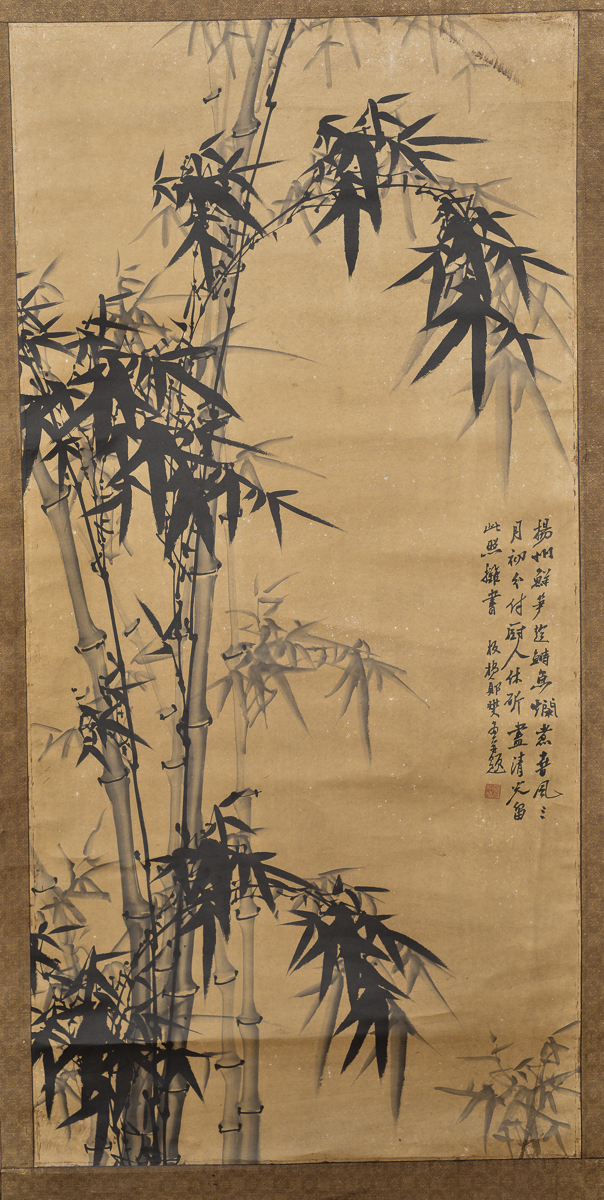 揚州鮮笋趁鰣魚爛煮春風三
月初分付厨人休斫盡清光留
此照攤書 板橋鄭燮畫并題